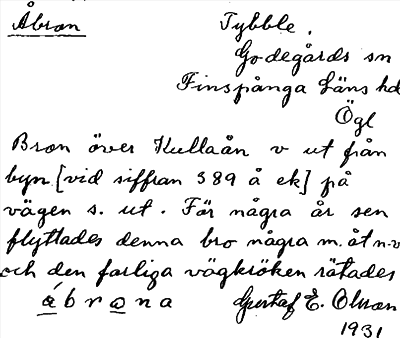 Åbron Tybble.
Godegårds sn
Finspånga Läns hd
Ögl
Bron över Kullaån v ut från
byn [vid siffran 389 å ek] på
vägen s. ut. För några år sen
flyttades denna bro några m. åt n.v
och den farliga vägkröken rätades
ábrona Gustaf E. Olsson
1931